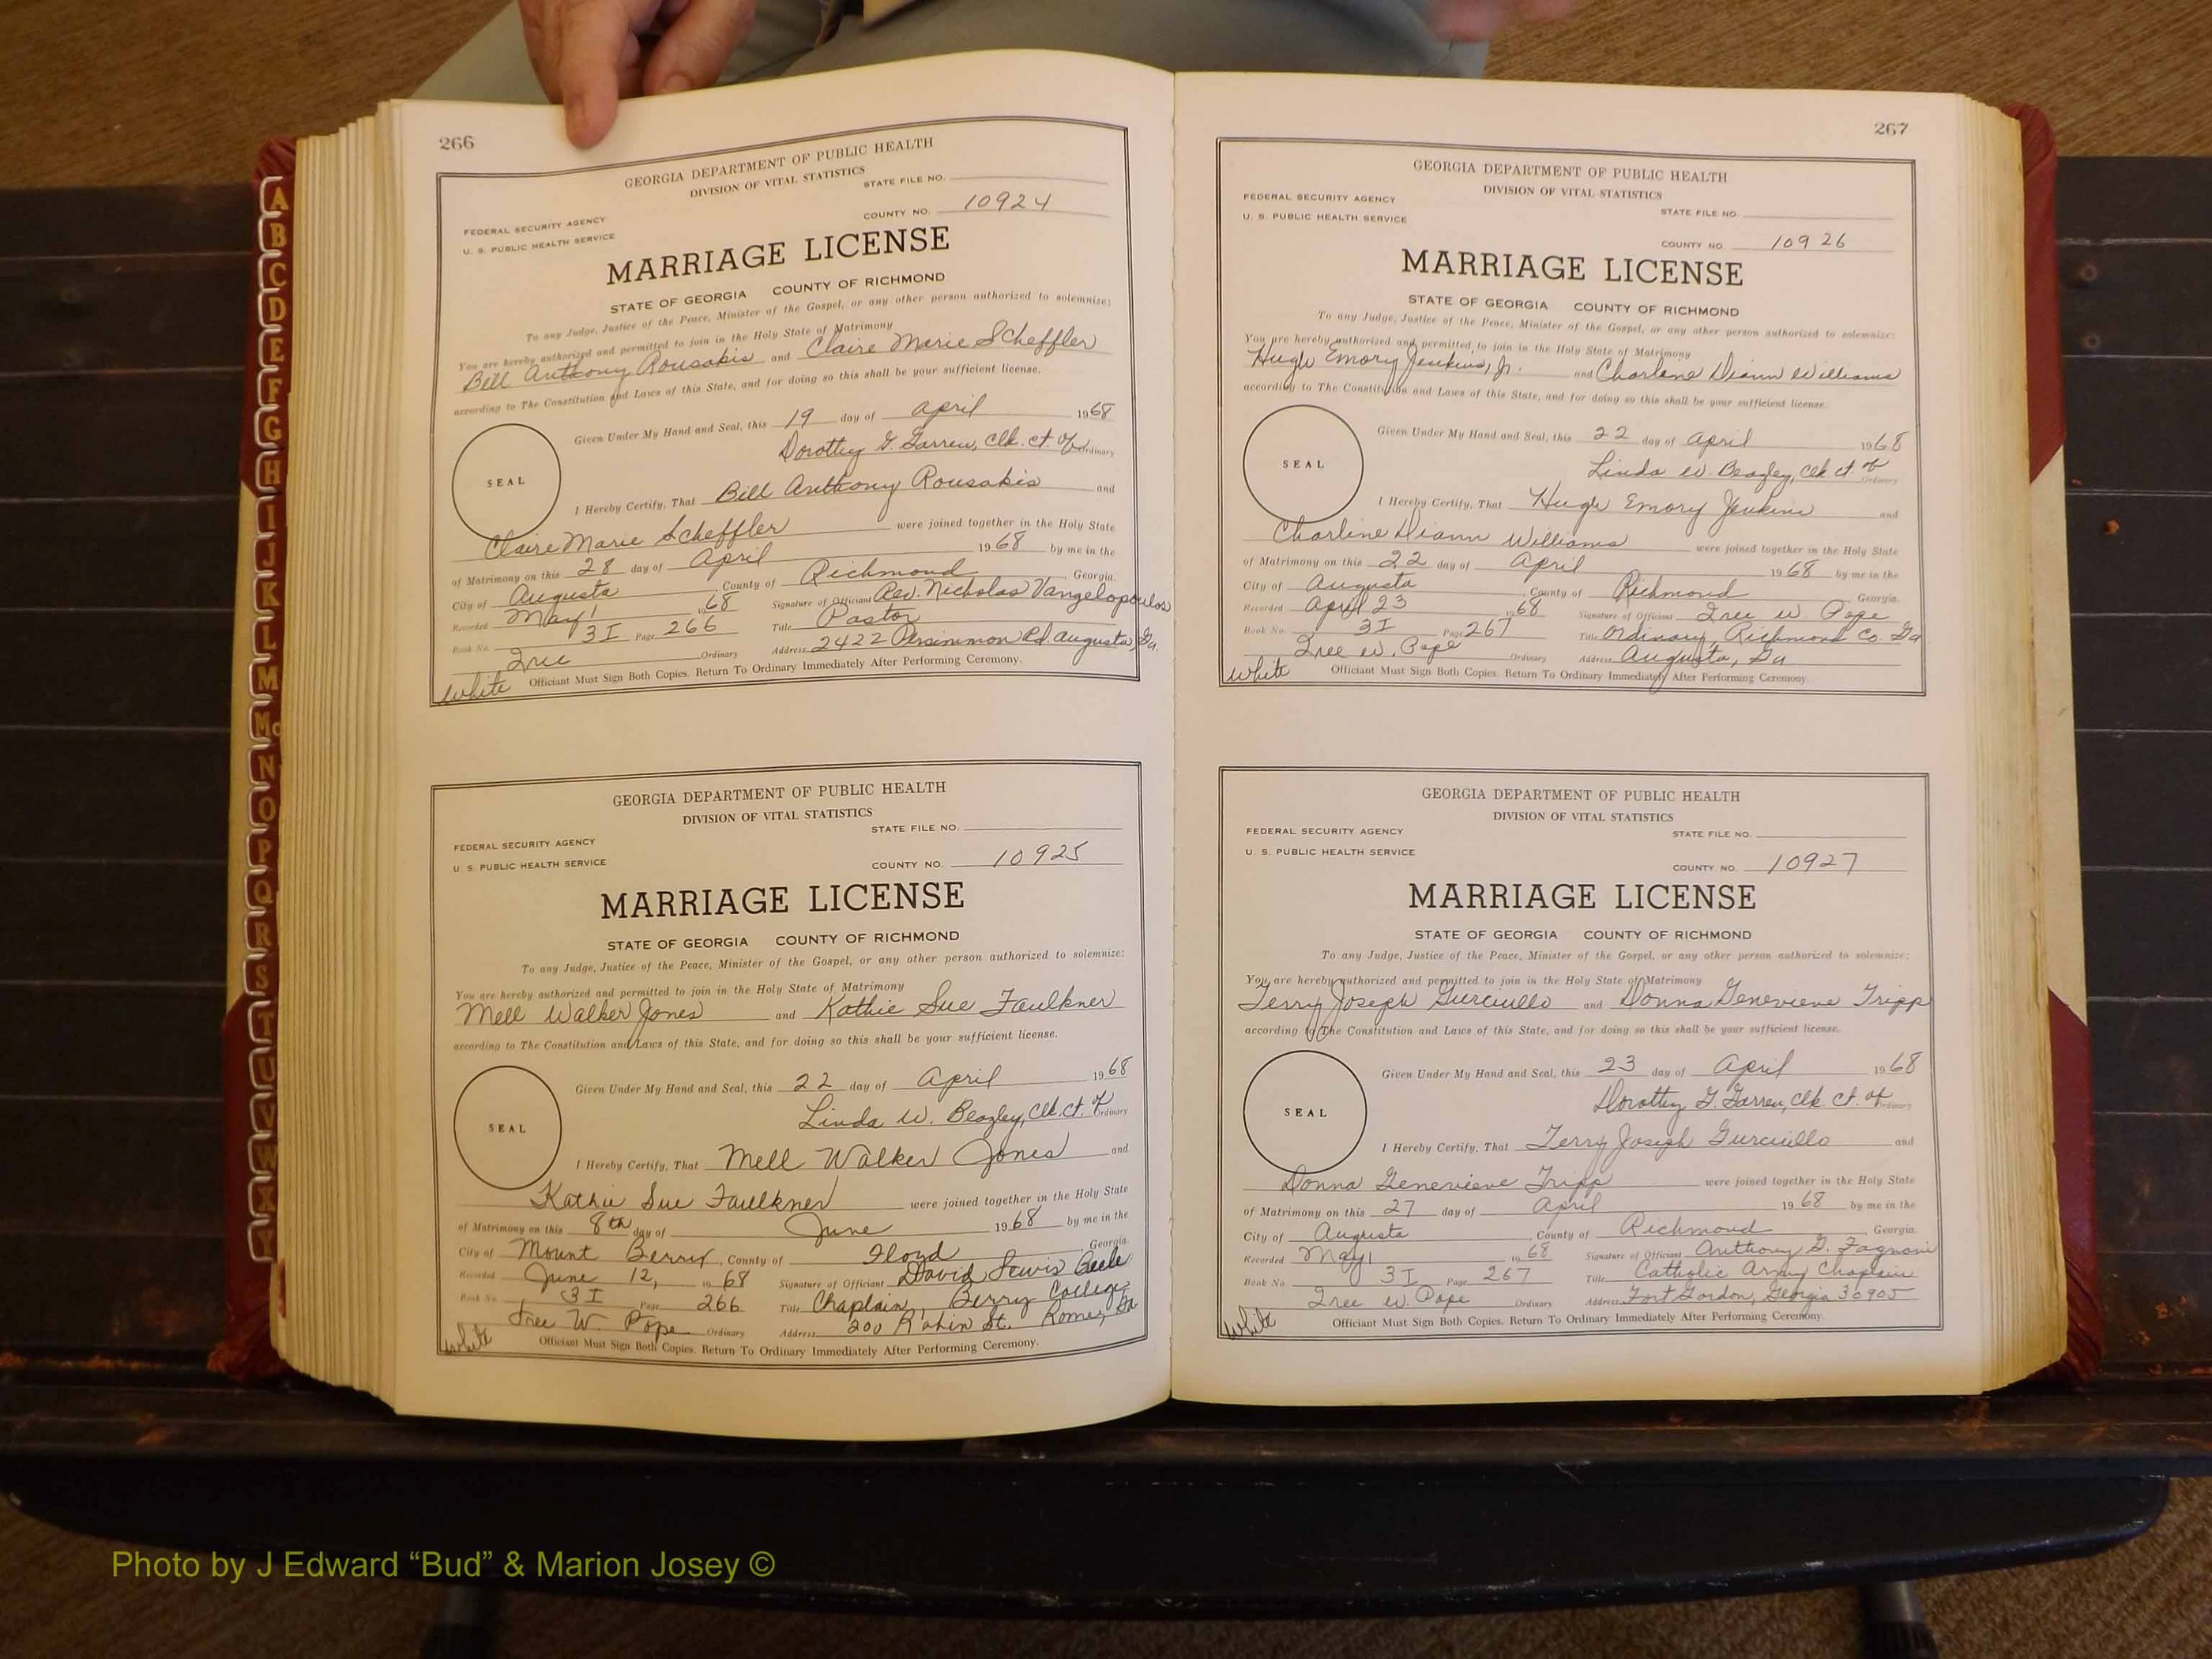 266
GEORGIA DEPARTMENT OF PUBLIC HEALTH
DIVISION OF VITAL STATISTICS
STATE FILE NO.
COUNTY NO. 10924
FEDERAL SECURITY AGENCY
U. S. PUBLIC HEALTH SERVICE
MARRIAGE LICENSE
STATE OF GEORGIA COUNTY OF RICHMOND
To any Judge, Justice of the Peace, Minister of the Gospel, or any other person authorized to solemnize:
You are hereby authorized and permitted to join in the Holy State of Matrimony
Bill Anthony Rousakis and Claire Marie Scheffler
according to The Constitution and Laws of this State, and for doing so this shall be your sufficient license.
Given Under My Hand and Seal, this 19 day of April 1968
Dorothy G. Garren, Clk. ct of Ordinary
SEAL
I Hereby Certify, That Bill Anthony Rousakis and
Claire Marie Scheffler were joined together in the Holy State
of Matrimony on this 28 day of April 1968 by me in the
City of Augusta, County of Richmond, Georgia.
Recorded May 1 1968 Signature of Officiant Rev. Nicholas Vangelopoulos
Book No. 3 I Page 266 Title Pastor
Iree Ordinary Address 2422 Persimmon Rd. Augusta, Ga.
White Officiant Must Sign Both Copies. Return To Ordinary Immediately After Performing Ceremony.
GEORGIA DEPARTMENT OF PUBLIC HEALTH
DIVISION OF VITAL STATISTICS
STATE FILE NO.
FEDERAL SECURITY AGENCY
U. S. PUBLIC HEALTH SERVICE
COUNTY NO. 10925
MARRIAGE LICENSE
STATE OF GEORGIA COUNTY OF RICHMOND
To any Judge, Justice of the Peace, Minister of the Gospel, or any other person authorized to solemnize:
You are hereby authorized and permitted to join in the Holy State of Matrimony
Mell Walker Jones and Kathie Sue Faulkner
according to The Constitution and Laws of this State, and for doing so this shall be your sufficient license.
Given Under My Hand and Seal, this 22 day of April 1968
Linda W. Beazley, Clk. ct. of Ordinary
SEAL
I Hereby Certify, That Mell Walker Jones and
Kathie Sue Faulkner were joined together in the Holy State
of Matrimony on this 8th day of June 1968 by me in the
City of Mount Berry, County of Floyd, Georgia.
Recorded June 12, 1968 Signature of Officiant David Lewis
Book No. 3 I Page 266 Title Chaplain, Berry College
Iree W. Pope Ordinary Address 200 Robin St. Rome, Ga
White Officiant Must Sign Both Copies. Return To Ordinary Immediately After Performing Ceremony.
267
GEORGIA DEPARTMENT OF PUBLIC HEALTH
DIVISION OF VITAL STATISTICS
FEDERAL SECURITY AGENCY
U. S. PUBLIC HEALTH SERVICE
STATE FILE NO.
COUNTY NO. 10926
MARRIAGE LICENSE
STATE OF GEORGIA COUNTY OF RICHMOND
To any Judge, Justice of the Peace, Minister of the Gospel, or any other person authorized to solemnize:
You are hereby authorized and permitted to join in the Holy State of Matrimony
Hugh Emory Jenkins, Jr. and Charlene Diann Williams
according to The Constitution and Laws of this State, and for doing so this shall be your sufficient license.
Given Under My Hand and Seal, this 22 day of April 1968
Linda W. Beazley, Clk ct. of Ordinary
SEAL
I Hereby Certify, That Hugh Emory Jenkins and
Charline Diann Williams were joined together in the Holy State
of Matrimony on this 22 day of April 1968 by me in the
City of Augusta, County of Richmond, Georgia.
Recorded April 23 1968 Signature of Officiant Iree W. Pope
Book No. 3 I Page 267 Title Ordinary, Richmond Co. Ga
Iree W. Pope Ordinary Address Augusta, Ga
White Officiant Must Sign Both Copies. Return To Ordinary Immediately After Performing Ceremony.
GEORGIA DEPARTMENT OF PUBLIC HEALTH
DIVISION OF VITAL STATISTICS
FEDERAL SECURITY AGENCY
STATE FILE NO.
U. S. PUBLIC HEALTH SERVICE
COUNTY NO. 10927
MARRIAGE LICENSE
STATE OF GEORGIA COUNTY OF RICHMOND
To any Judge, Justice of the Peace, Minister of the Gospel, or any other person authorized to solemnize:
You are hereby authorized and permitted to join in the Holy State of Matrimony
Terry Joseph Gurciullo and Donna Genevieve Tripp
according to The Constitution and Laws of this State, and for doing so this shall be your sufficient license.
Given Under My Hand and Seal, this 23 day of April 1968
Dorothy G. Garren, Clk. ct. of Ordinary
SEAL
I Hereby Certify, That Terry Joseph Gurciullo and
Donna Genevieve Tripp were joined together in the Holy State
of Matrimony on this 27 day of April 1968 by me in the
City of Augusta, County of Richmond, Georgia.
Recorded May 1 1968 Signature of Officiant Anthony G. Fagnoni
Book No. 3 I Page 267 Title Catholic Army Chaplain
Iree W. Pope Ordinary Address Fort Gordon, Georgia 30905
White Officiant Must Sign Both Copies. Return To Ordinary Immediately After Performing Ceremony.
A
B
C
D
E
F
G
H
I
J
K
L
M
Mc
N
O
P
Q
R
S
T
U
V
W
X
Y
Photo by J Edward “Bud” & Marion Josey ©